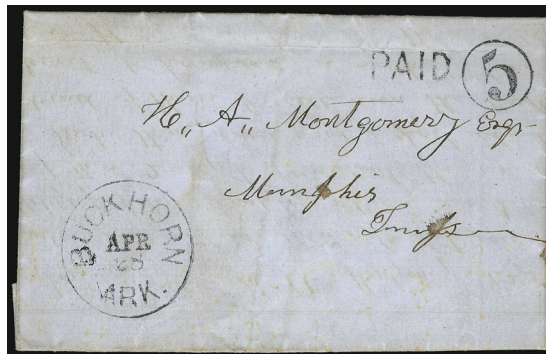 PAID 5
H,, A,, Montgomery Esqr
Memphis
BUCKHORN
APR
ARK.